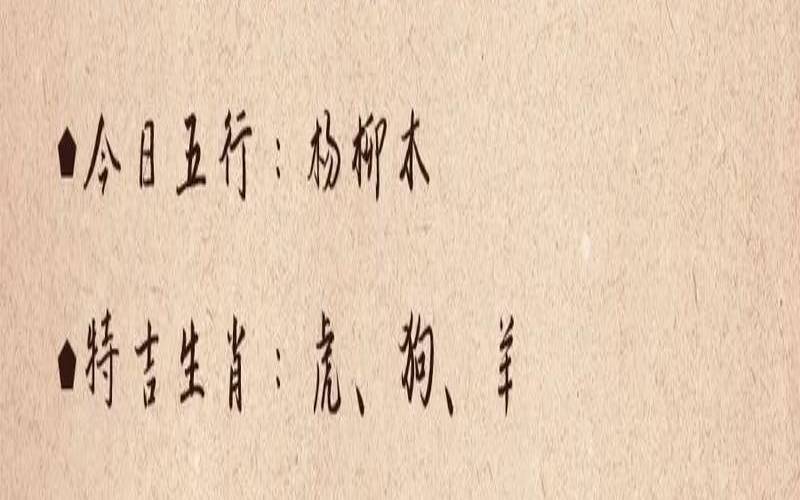 今日五行:杨柳木
特吉生肖:虎、狗、羊